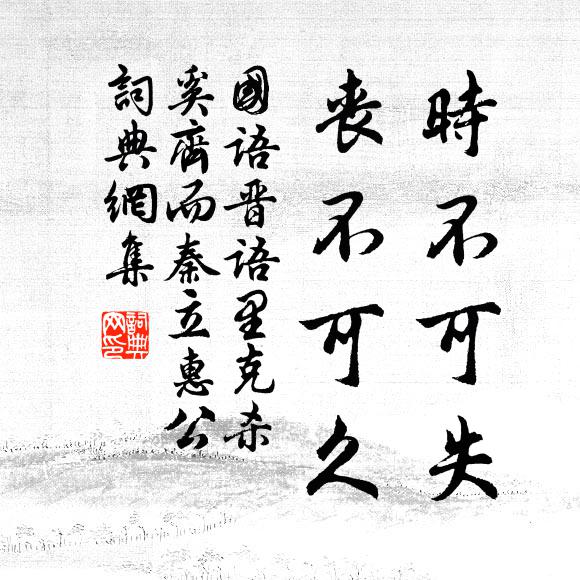 時不可失
喪不可久
國語晋語里克杀
奚齊而秦立惠公
詞典網集
詞典
网印